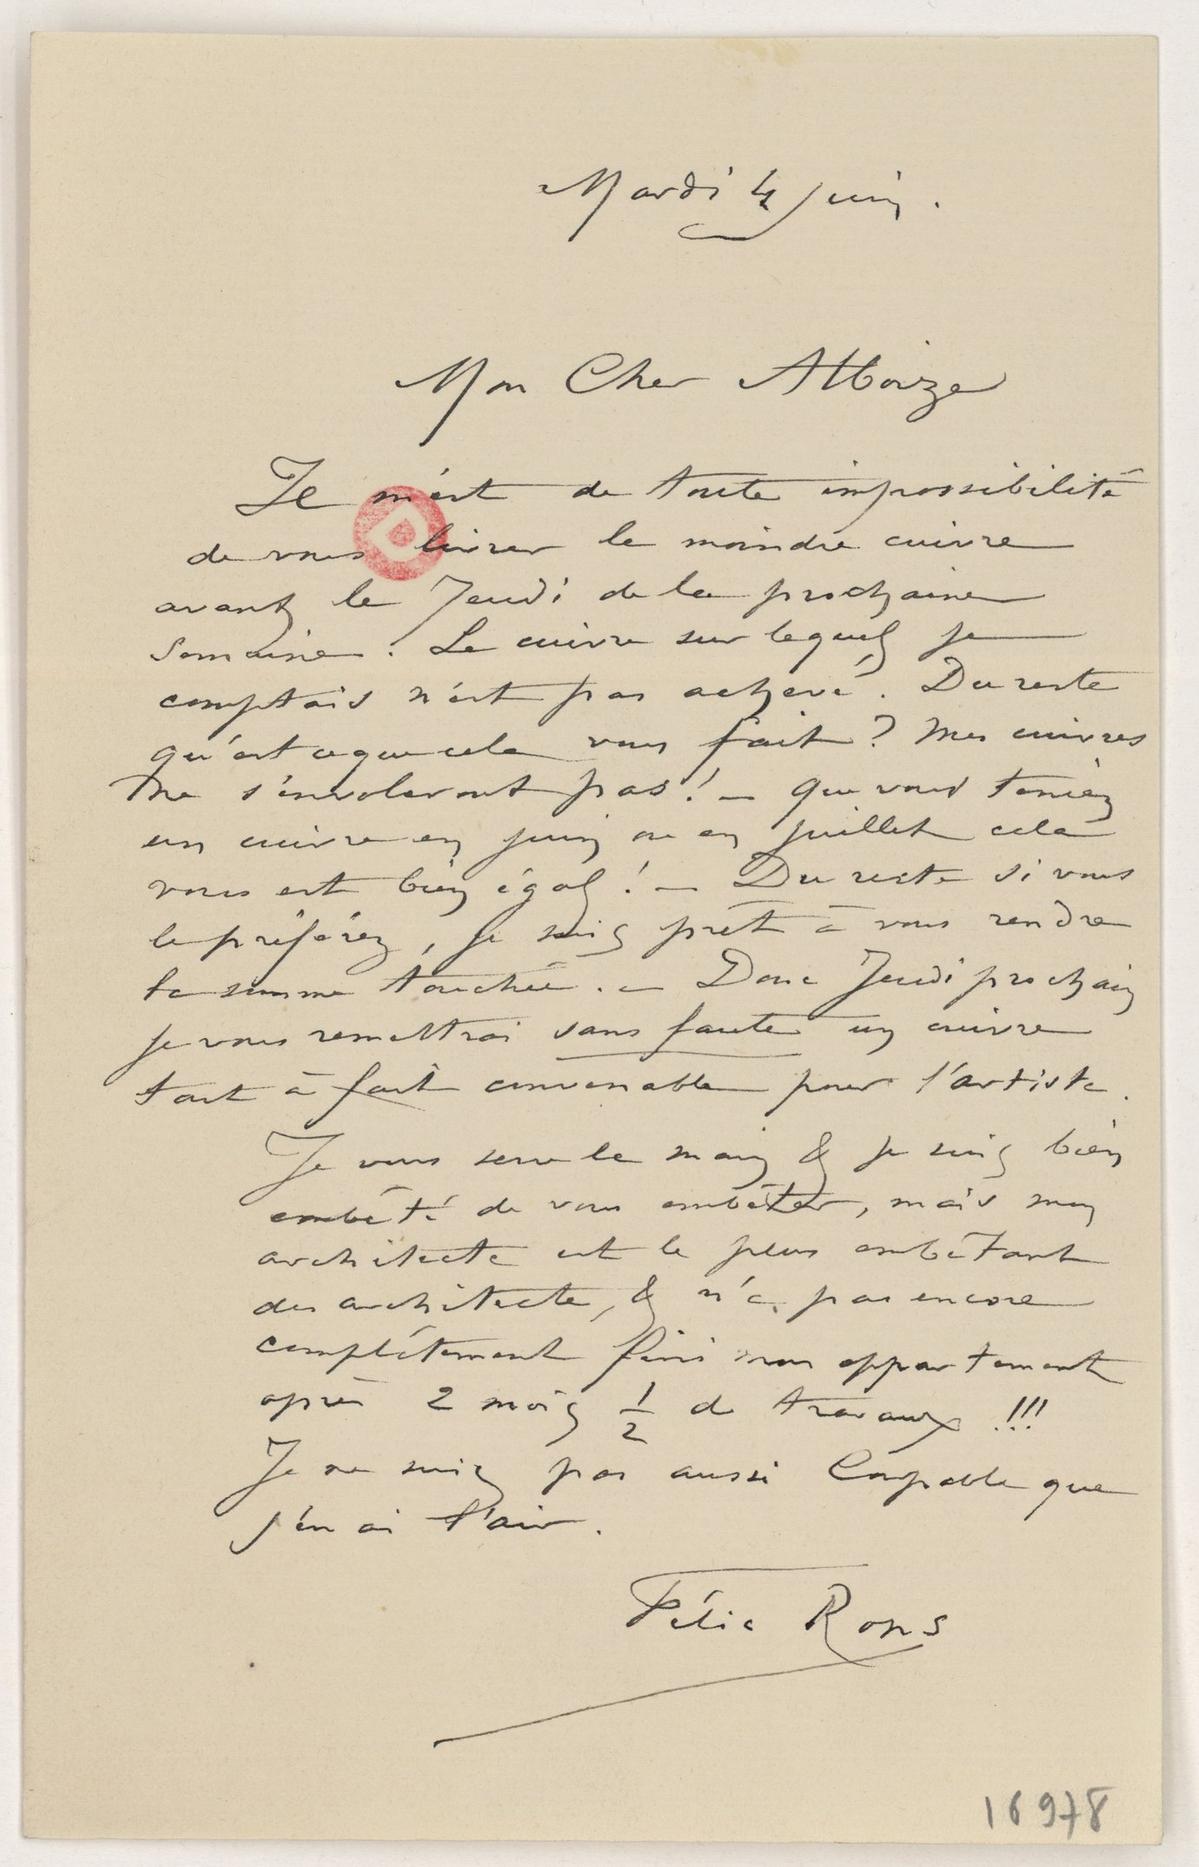 Mardi 4 juin.
Mon Cher Alboize
Il m'est de toute impossibilité
de vous livrer le moindre cuivre
avant le Jeudi de la prochaine
Semaine. Le cuivre sur lequel je
comptais n'est pas achevé. Du reste
qu'est ce que cela vous fait ? Mes cuivres
ne s'envoleront pas ! — que vous teniez
un cuivre en juin ou en juillet cela
vous est bien égal ! — Du reste si vous
le préférez, je suis prêt à vous rendre
la somme touchée. — Donc Jeudi prochain
je vous remettrai sans faute un cuivre
tout à fait convenable pour l'artiste.
Je vous serre la main & je suis bien
embêté de vous embêter, mais mon
architecte est le plus embêtant
des architecte, & n'a pas encore
complétement fini mon appartement
après 2 mois 1/2 de travaux !!!
Je ne suis pas aussi Coupable que
j'en ai l'air.
Félic Rops
16978